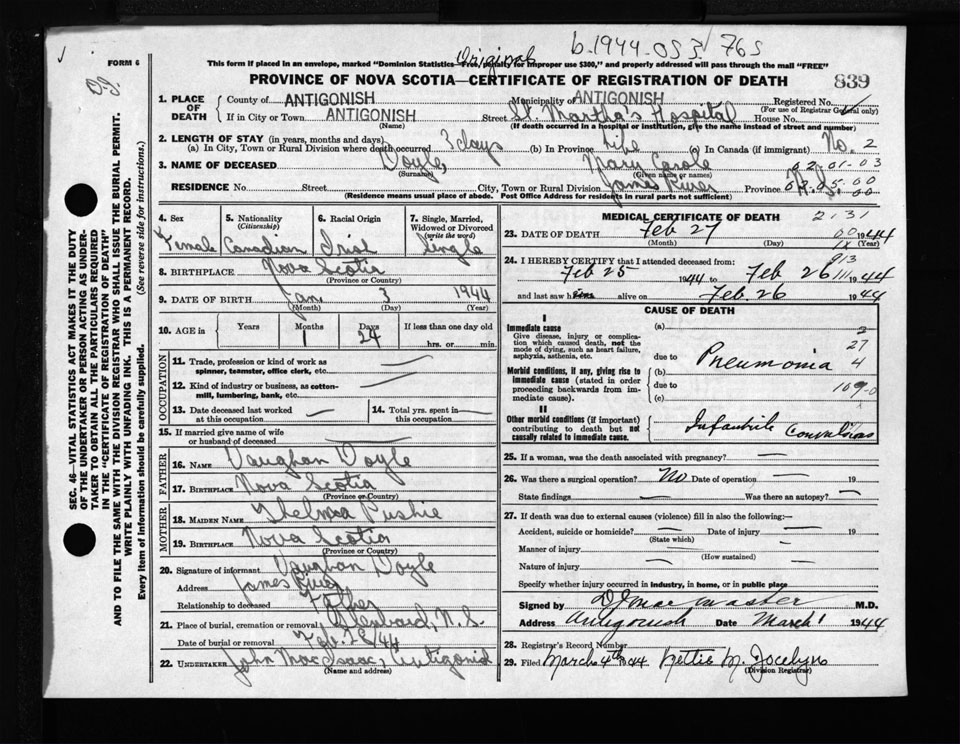 FORM 6
Original
b.1944-053176S
This form if placed in an envelope, marked "Dominion Statistics—Free, penalty for improper use $300," and properly addressed will pass through the mail "FREE"
PROVINCE OF NOVA SCOTIA—CERTIFICATE OF REGISTRATION OF DEATH
839
1. PLACE OF DEATH
County of ANTIGONISH Municipality of ANTIGONISH Registered No.
(For use of Registrar General only)
If in City or Town ANTIGONISH Street St. Martha's Hospital House No.
(Name) (If death occurred in a hospital or institution, give the name instead of street and number)
2. LENGTH OF STAY (in years, months and days)
(a) In City, Town or Rural Division where death occurred 3 days (b) In Province life (c) In Canada (if immigrant) No. 2
3. NAME OF DECEASED Doyle, Mary Carole
(Surname) (Given name or names)
02-01-03
RESIDENCE No. Street City, Town or Rural Division James River Province N.S.
(Residence means usual place of abode. Post Office Address for residents in rural parts not sufficient)
4. Sex Female
5. Nationality (Citizenship) Canadian
6. Racial Origin Irish
7. Single, Married, Widowed or Divorced (write the word) Single
8. BIRTHPLACE Nova Scotia
(Province or Country)
9. DATE OF BIRTH Jan 3 1944
(Month) (Day) (Year)
10. AGE in Years Months Days If less than one day old
1 24 hrs. or min.
OCCUPATION
11. Trade, profession or kind of work as spinner, teamster, office clerk, etc.
12. Kind of industry or business, as cotton-mill, lumbering, bank, etc.
13. Date deceased last worked at this occupation
14. Total yrs. spent in this occupation
15. If married give name of wife or husband of deceased
FATHER
16. NAME Vaughan Doyle
17. BIRTHPLACE Nova Scotia
(Province or Country)
MOTHER
18. MAIDEN NAME Thelma Pushie
19. BIRTHPLACE Nova Scotia
(Province or Country)
20. Signature of informant Vaughan Doyle
Address James River
Relationship to deceased Father
21. Place of burial, cremation or removal N.S.
Date of burial or removal Feb. 28/44
22. UNDERTAKER John MacIsaac, Antigonish
(Name and address)
MEDICAL CERTIFICATE OF DEATH
2131
23. DATE OF DEATH Feb 27 1944
(Month) (Day) (Year)
24. I HEREBY CERTIFY that I attended deceased from:
Feb 25 1944 to Feb 26 1944
and last saw him alive on Feb. 26 1944
CAUSE OF DEATH
I
Immediate cause
Give disease, injury or complication which caused death, not the mode of dying, such as heart failure, asphyxia, asthenia, etc.
(a)
due to Pneumonia
Morbid conditions, if any, giving rise to immediate cause (stated in order proceeding backwards from immediate cause).
(b)
due to
(c)
27
4
109-0
II
Other morbid conditions (if important) contributing to death but not causally related to immediate cause.
Infantile Convulsions
25. If a woman, was the death associated with pregnancy?
26. Was there a surgical operation? No Date of operation 19
State findings Was there an autopsy?
27. If death was due to external causes (violence) fill in also the following:—
Accident, suicide or homicide? Date of injury 19
(State which)
Manner of injury
(How sustained)
Nature of injury
Specify whether injury occurred in industry, in home, or in public place
Signed by D J MacMaster M.D.
Address Antigonish Date March 1 1944
28. Registrar's Record Number
29. Filed March 4th 1944 Nettie M. Jocelyn
(Division Registrar)
SEC. 46—VITAL STATISTICS ACT MAKES IT THE DUTY
OF THE UNDERTAKER OR PERSON ACTING AS UNDER
TAKER TO OBTAIN ALL THE PARTICULARS REQUIRED
IN THE "CERTIFICATE OF REGISTRATION OF DEATH"
AND TO FILE THE SAME WITH THE DIVISION REGISTRAR WHO SHALL ISSUE THE BURIAL PERMIT.
WRITE PLAINLY WITH UNFADING INK. THIS IS A PERMANENT RECORD.
Every item of information should be carefully supplied. (See reverse side for instructions.)